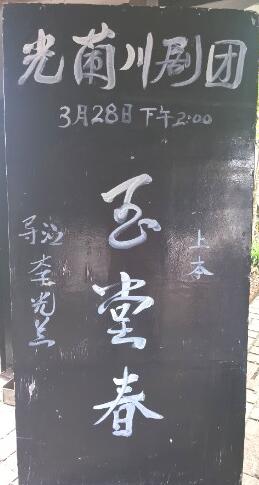 光菌川剧团
3月28日下午2:00
上本
玉堂春
导演李光兰